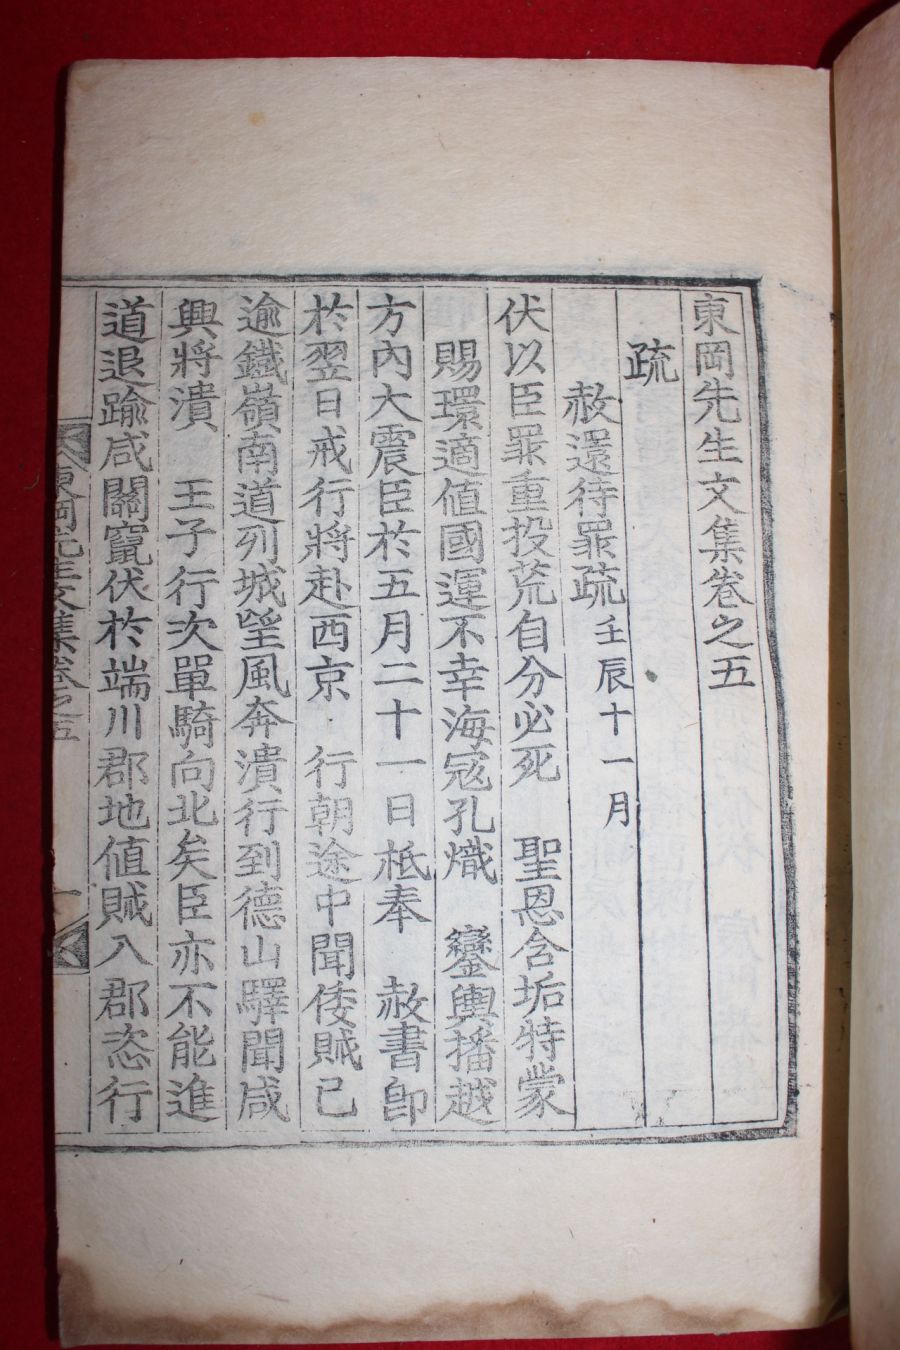 東岡先生文集卷之五
疏
赦還待罪疏 壬辰十一月
伏以臣罪重投荒自分必死 聖恩含垢特蒙
賜環適値國運不幸海寇孔熾 鑾輿播越
方內大震臣於五月二十一日祗奉 赦書卽
於翌日戒行將赴西京 行朝途中聞倭賊已
逾鐵嶺南道列城望風奔潰行到德山驛聞咸
興將潰 王子行次單騎向北矣臣亦不能進
道退踰咸關竄伏於端川郡地値賊入郡恣行
東岡先生文集卷之五
一